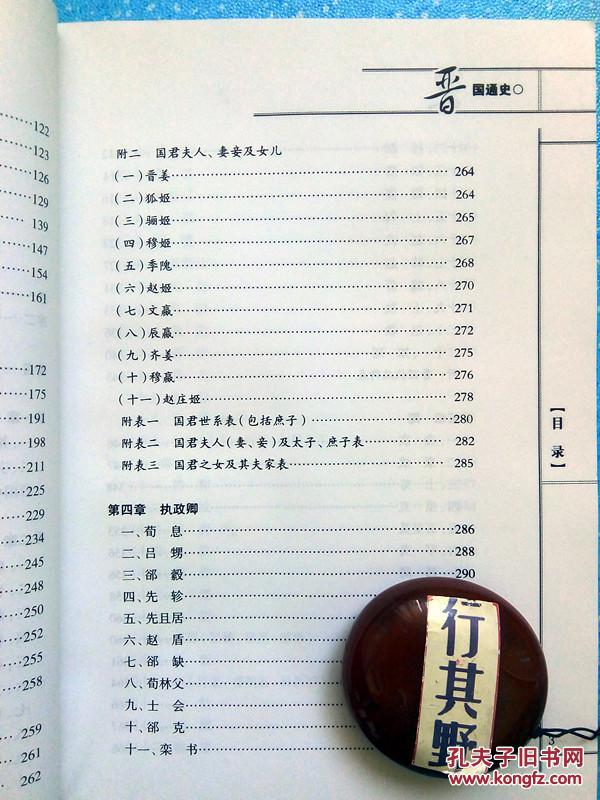 122
123
126
129
139
147
154
161
172
175
191
198
211
225
229
234
245
248
250
252
255
258
259
261
262
晋国通史○
附二 国君夫人、妻妾及女儿
(一)晋姜……264
(二)狐姬……264
(三)骊姬……265
(四)穆姬……267
(五)季隗……268
(六)赵姬……270
(七)文嬴……271
(八)辰嬴……272
(九)齐姜……275
(十)穆嬴……276
(十一)赵庄姬……278
附表一 国君世系表(包括庶子)……280
附表二 国君夫人(妻、妾)及太子、庶子表……282
附表三 国君之女及其夫家表……285
第四章 执政卿
一、荀 息……286
二、吕 甥……288
三、郤 縠……290
四、先 轸……
五、先且居……
六、赵 盾……
七、郤 缺……
八、荀林父……
九、士 会……
十、郤 克……
十一、栾 书……
【目录】
3
行其野
孔夫子旧书网
www.kongfz.com